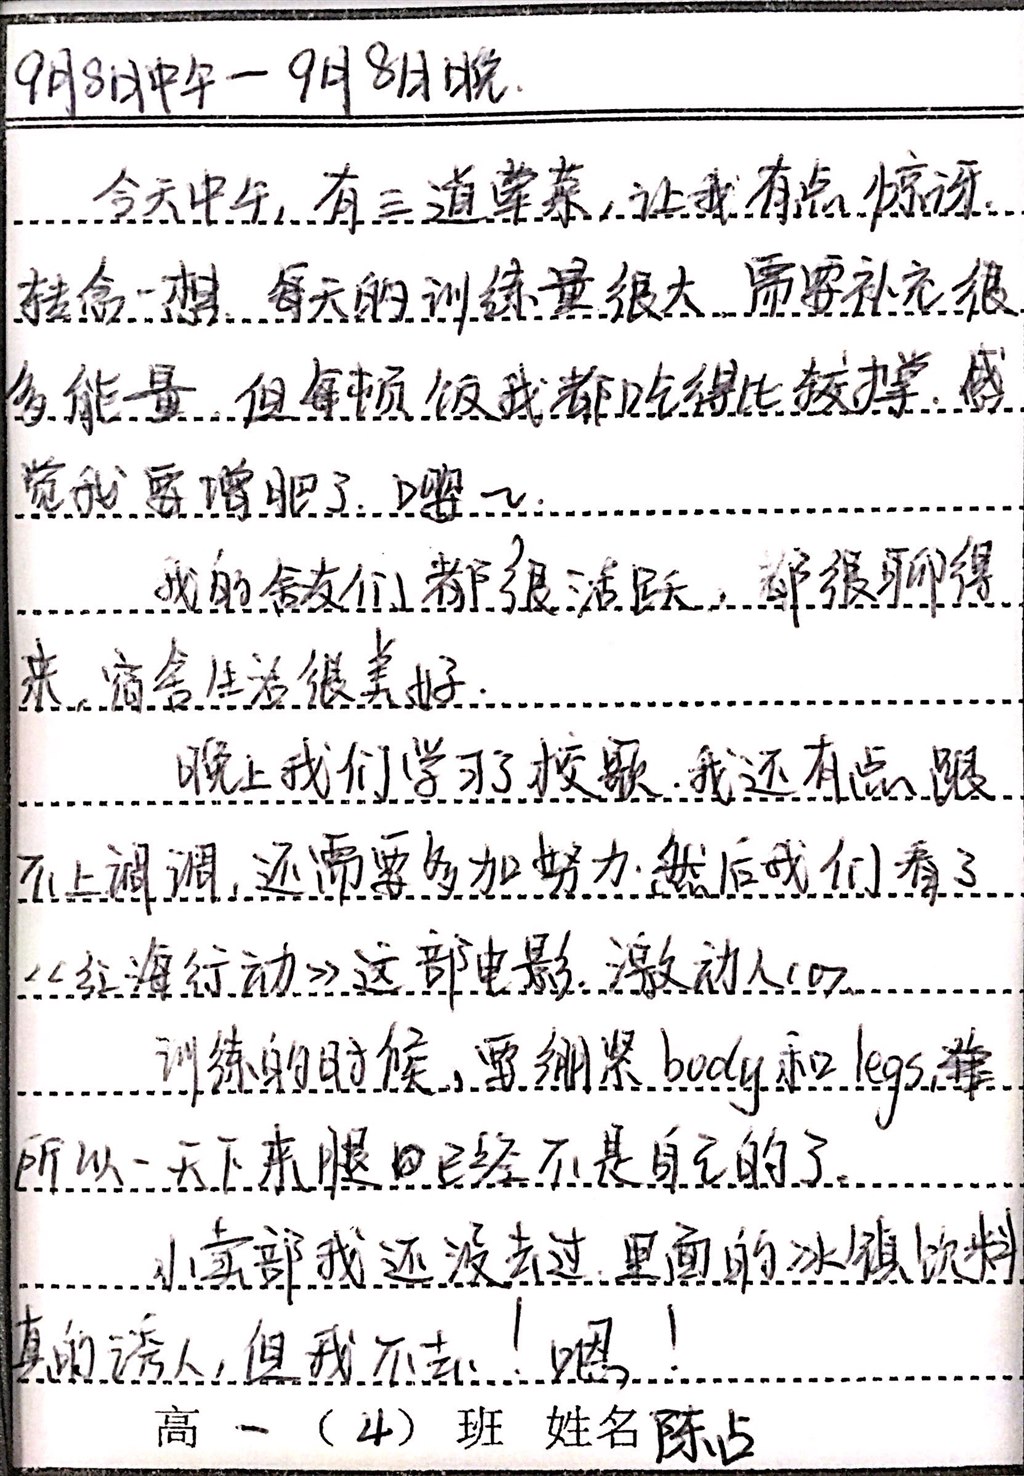 9月8日中午一9月8日晚.
今天中午,有三道荤菜,让我有点惊讶.
转念一想.每天的训练量很大 需要补充很
多能量.但每顿饭我都吃得比较撑.感
觉我要增肥了.嘤~.
我的舍友们都很活跃,都很聊得
来.宿舍生活很美好.
晚上我们学习了校歌.我还有点跟
不上调调,还需要多加努力.然后我们看了
《红海行动》这部电影.激动人心.
训练的时候,要绷紧body和legs,
所以一天下来腿已经不是自己的了.
小卖部我还没去过.里面的冰镇饮料
真的诱人,但我不去!嗯!
高一(4)班 姓名陈占